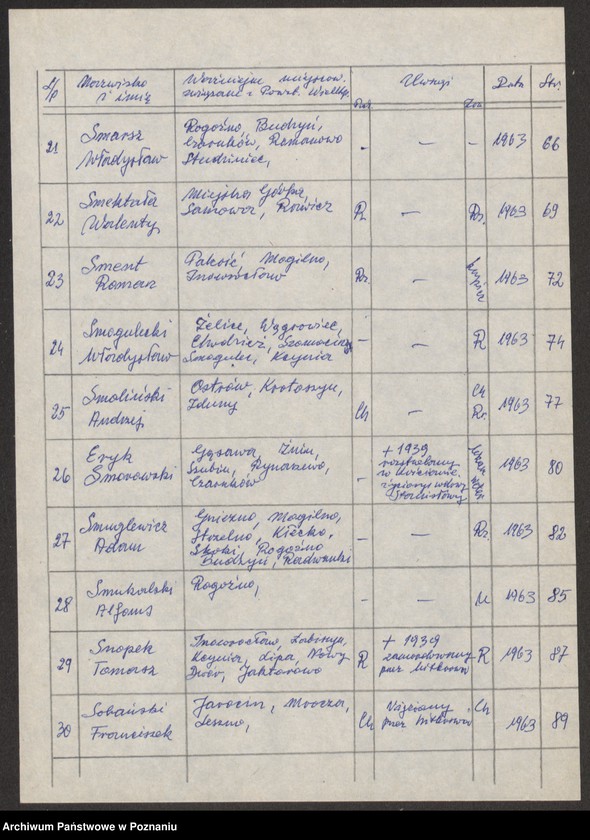 L/p Nazwisko i imię Ważniejsze miejscow. związane z Powst. Wielkp. Uwagi Data Str.
21 Smarsz Władysław Rogoźno, Budzyń, Czarnków, Romanowo Studziniec, - - - 1963 66
22 Smektała Walenty Miejska Górka, Sarnowa, Rawicz R. - Rz. 1963 69
23 Sment Roman Pakość Mogilno, Inowrocław Rz. - 1963 72
24 Smogulecki Władysław Żelice, Wągrowiec, Chodzież, Szamocin, Smogulec, Kcynia - - R 1963 74
25 Smoliński Andrzej Ostrów, Krotoszyn, Zduny Ch - Ch Rz. 1963 77
26 Eryk Smorowski Gąsawa, Żnin, Szubin, Rynarzewo, Czarnków - + 1939 rozstrzelany 1963 80
27 Smuglewicz Adam Gniezno, Mogilno, Strzelno, Kłecko, Skoki, Rogoźno Budzyń, Radwanki - - Rz. 1963 82
28 Smukalski Alfons Rogoźno, - - U 1963 85
29 Snopek Tomasz Inowrocław, Łabiszyn, Kcynia, Lipa, Nowy Dwór, Jaktorowo R + 1939 zamordowany przez hitlerow. R 1963 87
30 Sobański Franciszek Jarocin, Mrocza, Leszno, Ch Więziony przez hitlerowców Ch 1963 89
Archiwum Państwowe w Poznaniu